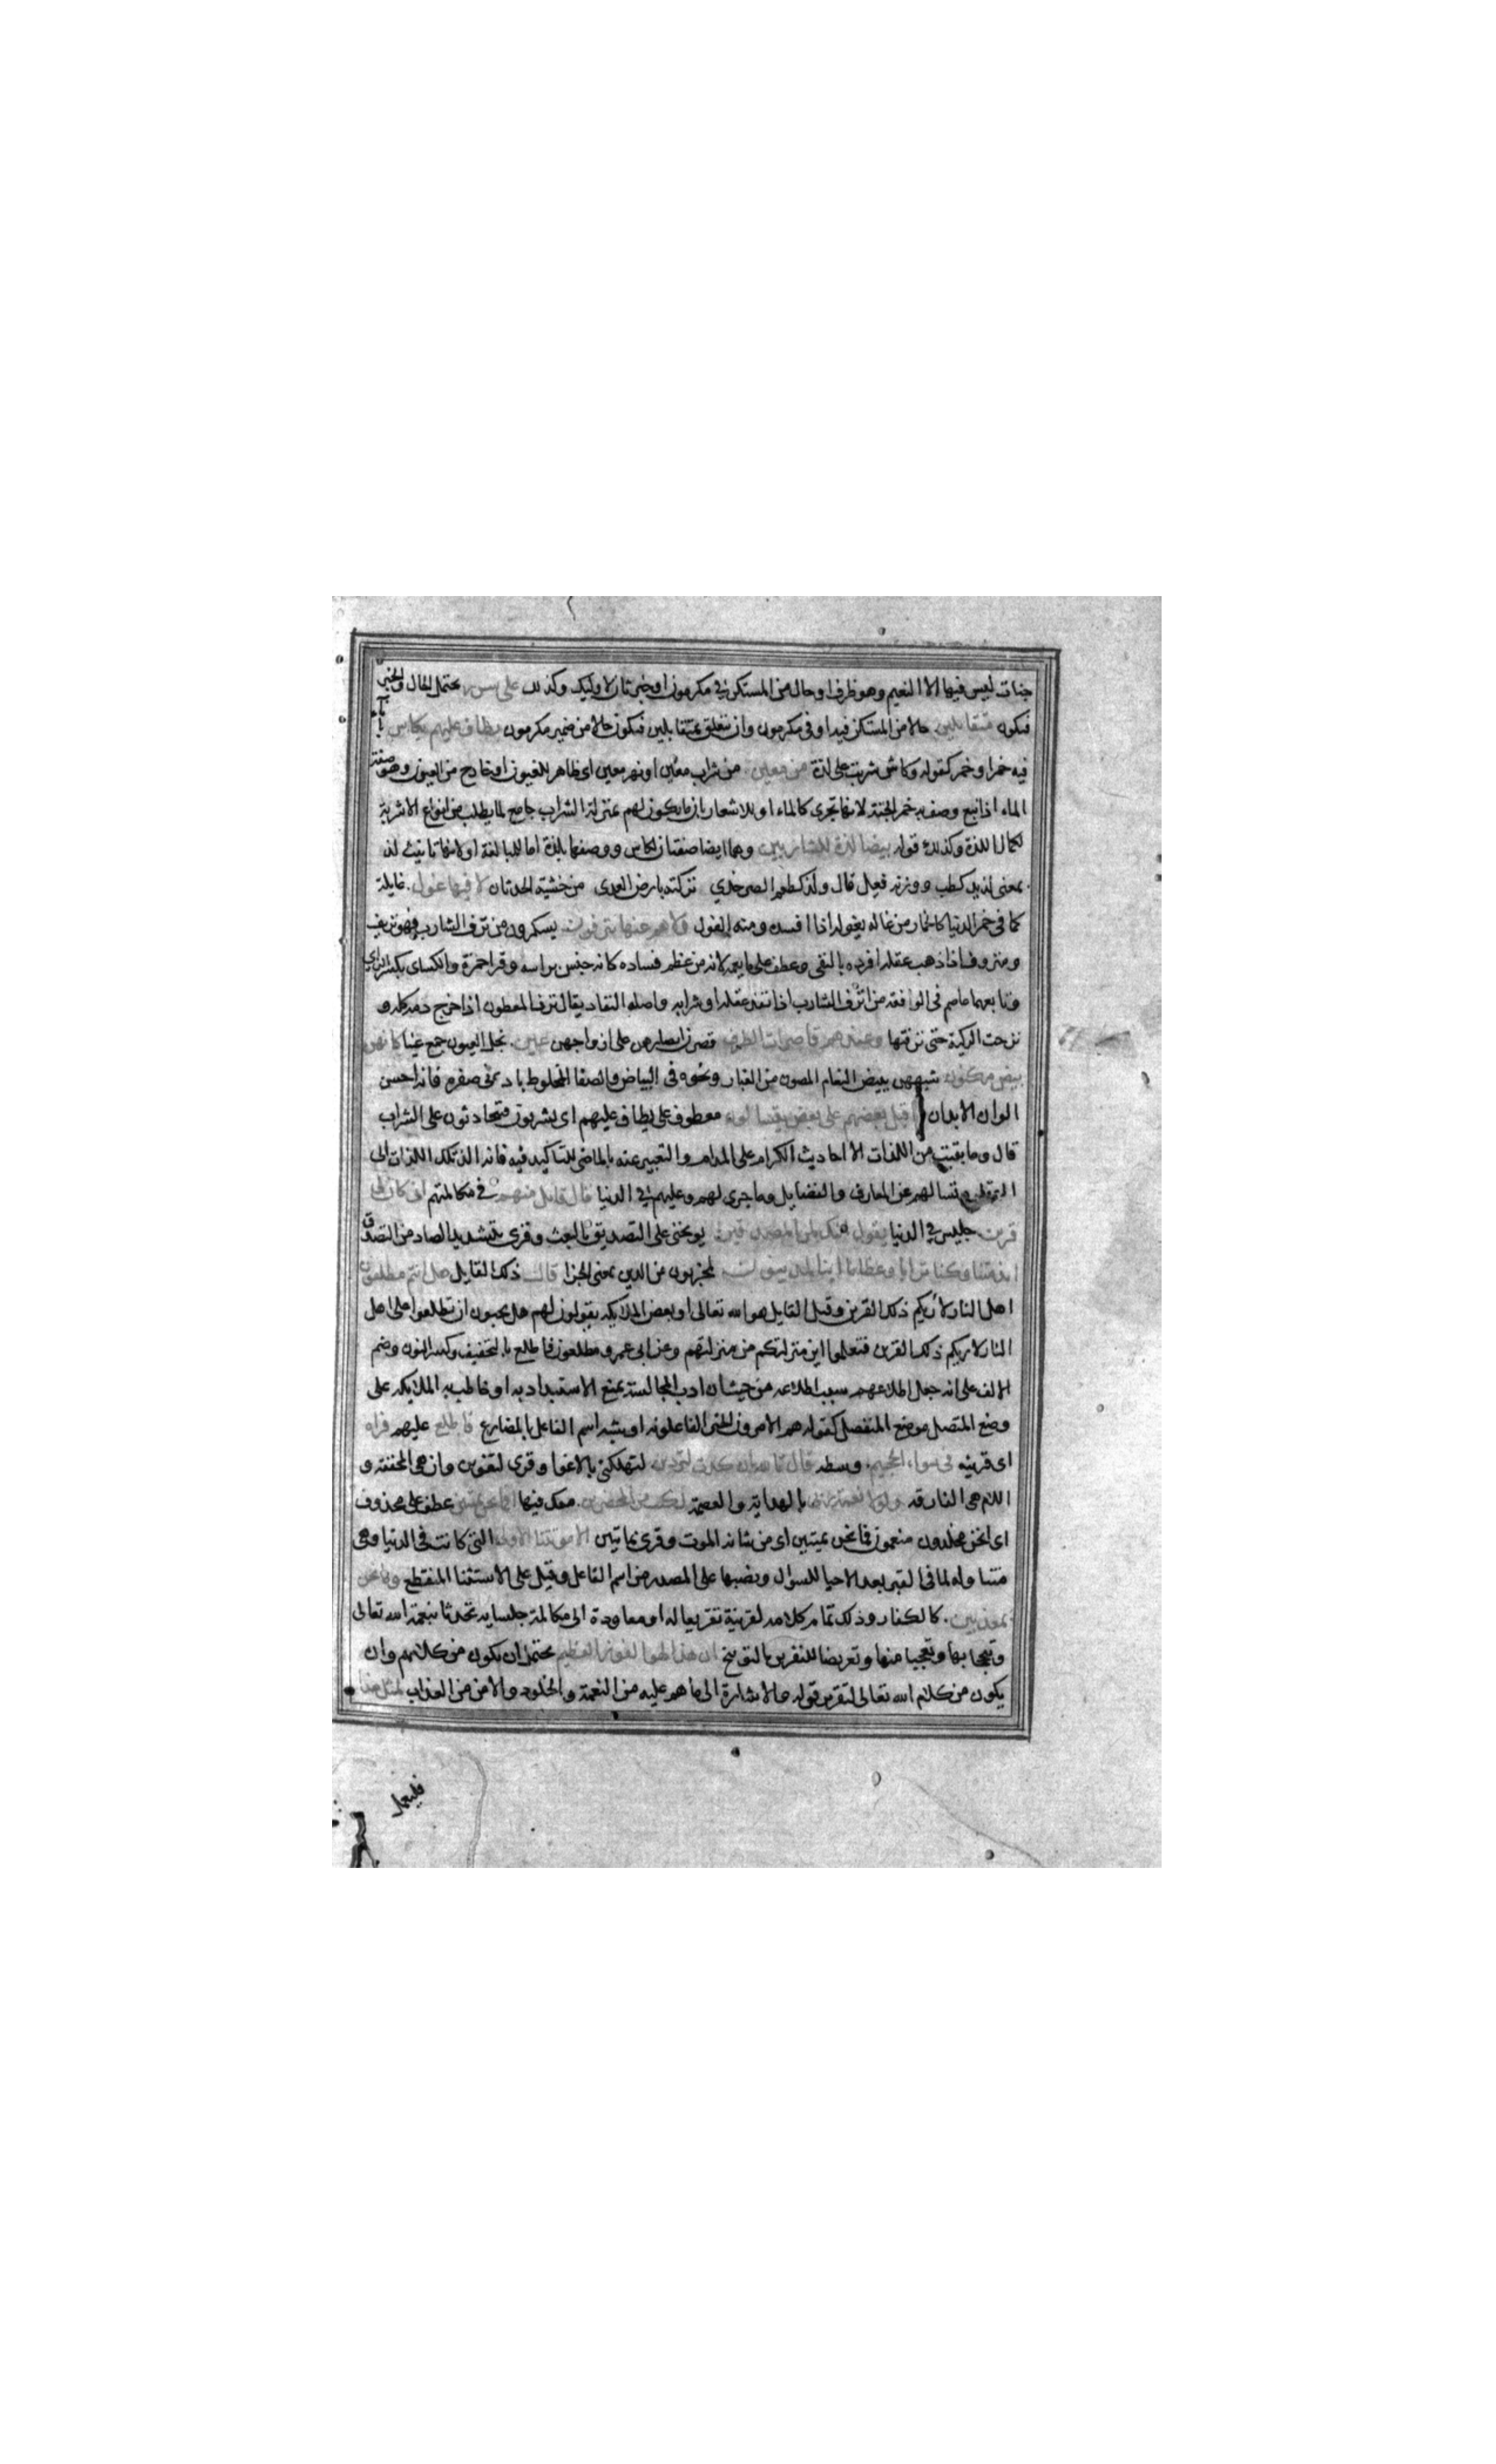 جنات ليس فيها الا النعيم وهو ظرف او حال من المستكن في مكرمون او خبر ثان لاوليك وكذلك على سرر يحتمل الحال والخبر
فيكون متقابلين حالا من المستكن فيه او في مكرمون وان يتعلق بمتقابلين فيكون حالا من ضمير مكرمون يطاف عليهم بكاس باناء
فيه خمر او خمر كقوله وكاس شربت على لذة من معين من شراب معين او نهر معين اى ظاهر للعيون او خارج من العيون وهو صفة
الماء اذا نبع وصف به خمر الجنة لانها تجرى كالماء او للاشعار بان ما يكون لهم بمنزلة الشراب جامع لما يطلب من انواع الاشربة
لكمال اللذة وكذلك قوله بيضا لذة للشاربين وهما ايضا صفتان لكاس ووصفها بلذة اما للمبالغة او لانها تانيث لذ
بمعنى لذيذ كطب ووزنه فعيل قال ولذ كطعم الصرخدي تركته بارض العدى من خشية الحدثان لا فيها غول غايلة
كما في خمر الدنيا كالخمار من غاله يغوله اذا افسده ومنه الغول ولا هم عنها ينزفون يسكرون من نزف الشارب فهو نزيف
ومنزوف اذا ذهب عقله افرده بالنفى وعطفه على ما يعمه لانه من عظم فساده كانه جنس براسه وقرا حمزة والكساى بكسر الزاى
وتابعهما عاصم في الواقعة من انزف الشارب اذا نفد عقله او شرابه واصله النفاد يقال نزف المطعون اذا خرج دمه كله و
نزحت الركية حتى نزفتها وعندهم قاصرات الطرف قصرن ابصارهن على ازواجهن عين نجل العيون جمع عينا كانهن
بيض مكنون شبههن ببيض النعام المصون من الغبار ونحوه في البياض والصفا المخلوط بادنى صفرة فانه احسن
الوان الابدان فاقبل بعضهم على بعض يتسالون معطوف على يطاف عليهم اى يشربون فيتحادثون على الشراب
قال وما بقيت من اللذات الا احاديث الكرام على المدام والتعبير عنه بالماضى للتاكيد فيه فانه الذ تلك اللذات الى
العقل وتسالهم عن المعارف والفضايل وما جرى لهم وعليهم في الدنيا قال قايل منهم في مكالمتهم انى كان لى
قرين جليس في الدنيا يقول ائنك لمن المصدقين يوبخنى على التصديق بالبعث وقرى بتشديد الصاد من التصدق
ائذا متنا وكنا ترابا وعظاما اينا لمدينون لمجزيون من الدين بمعنى الجزا قال ذلك القايل هل انتم مطلعون
اهل النار لاريكم ذلك القرين وقيل القايل هو الله تعالى او بعض الملايكه يقولون لهم هل تحبون ان تطلعوا على اهل
النار لاريكم ذلك القرين فتعلموا اين منزلتكم من منزلتهم وعن ابى عمرو مطلعون فاطلع بالتخفيف وكسر النون وضم
الالف على انه جعل اطلاعهم سبب اطلاعه من حيث ان ادب المجالسة يمنع الاستبداد به او خاطب به الملايكه على
وضع المتصل موضع المنفصل كقوله هم الامرون الخير والفاعلونه او شبه اسم الفاعل بالمضارع فاطلع عليهم فراه
اى قرينه في سواء الجحيم وسطه قال تالله ان كدت لتردين لتهلكنى بالاغوا وقرى لتغوين وان هى المخففة و
اللام هى الفارقه ولولا نعمة ربى بالهداية والعصمة لكنت من المحضرين معك فيها افما نحن بميتين عطف على محذوف
اى انحن مخلدون منعمون فما نحن بميتين اى من شانه الموت وقرى بمايتين الا موتتنا الاولى التى كانت في الدنيا وهى
متناولة لما في القبر بعد الاحيا للسوال ونصبها على المصدر من اسم الفاعل وقيل على الاستثنا المنقطع وما نحن
بمعذبين كالكفار وذلك تمام كلامه لقرينة تقريعا له او معاودة الى مكالمة جلسايه تحدثا بنعمة الله تعالى
وتبجحا بها وتعجبا منها وتعريضا للقرين بالتوبيخ ان هذا لهو الفوز العظيم يحتمل ان يكون من كلامهم وان
يكون من كلام الله تعالى لتقرير قوله والاشارة الى ما هم عليه من النعمة والخلود والامن من العذاب لمثل هذا
فليعمل